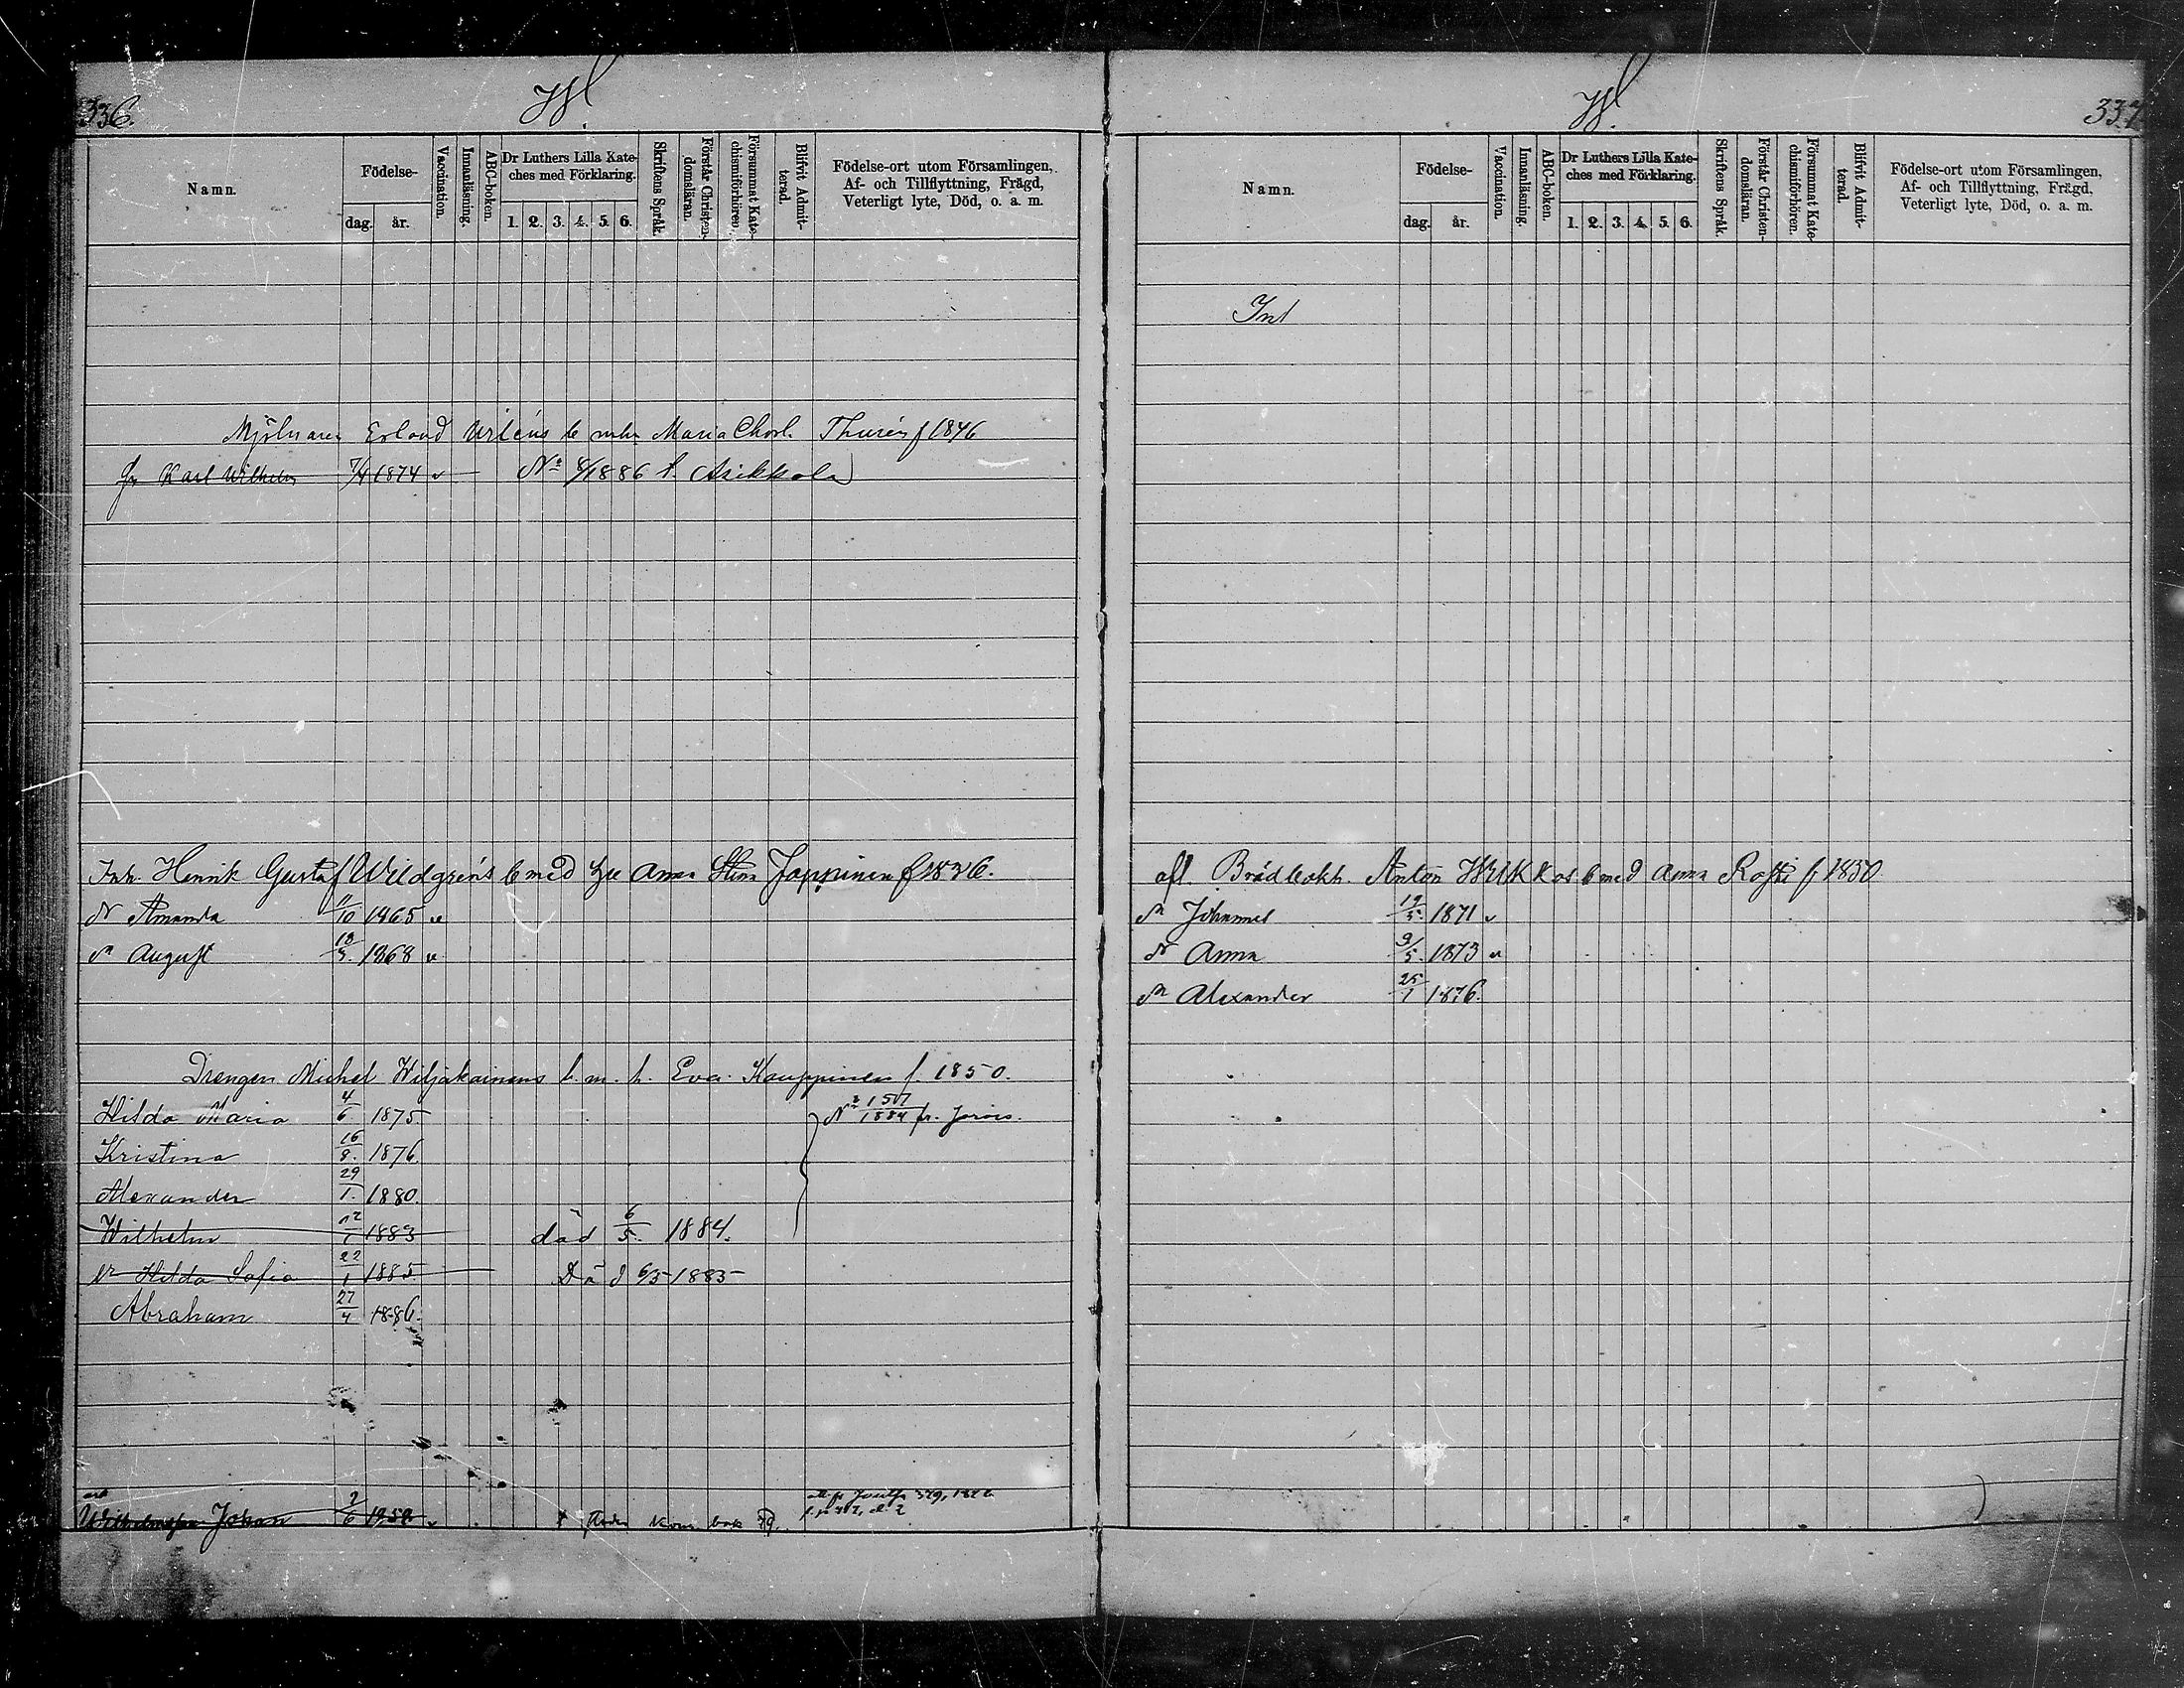 336.
W.
Namn.
Födelse-
dag. år.
Vaccination.
Innanläsning.
ABC-boken.
Dr Luthers Lilla Kate-
ches med Förklaring.
1. 2. 3. 4. 5. 6.
Skriftens Språk.
Förstår Christen-
domsläran.
Försummat Kate-
chismiförhören.
Blifvit Admit-
terad.
Födelse-ort utom Församlingen,
Af- och Tillflyttning, Frägd,
Veterligt lyte, Död, o. a. m.
Mjölnaren Erland b Maria Charl. Thurén f 1846
Karl Wilhelm 7/4 1874 v N:o 1886 t. Asikkola
Inh. Henrik Gustaf Wildgréns b med Anna Stina Jappinen f 1826.
Amanda 11/10 1865 v
August 1868 v
Drengen Michel Wiljakainens b. m. h. Eva Kauppinen f. 1850.
Hilda Maria 4/6 1875 1884 fr. Jorois.
Kristina 16/8. 1876.
Alexander 29/1. 1880.
Wilhelm 12/1 1883 död 6/5. 1884.
Hilda Sofia 22/1 1885 Död 6/5 1885
Abraham 27/4 1886.
Johan 2/6
337
W.
Namn.
Födelse-
dag. år.
Vaccination.
Innanläsning.
ABC-boken.
Dr Luthers Lilla Kate-
ches med Förklaring.
1. 2. 3. 4. 5. 6.
Skriftens Språk.
Förstår Christen-
domsläran.
Försummat Kate-
chismiförhören.
Blifvit Admit-
terad.
Födelse-ort utom Församlingen,
Af- och Tillflyttning, Frägd,
Veterligt lyte, Död, o. a. m.
Inh
afl. Anton b med Anna f 1830
Johannes 19/5. 1871 v
Anna 9/5. 1873 v
Alexander 25/1 1876.